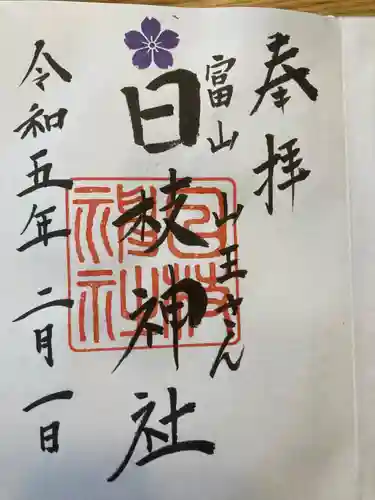 奉拝
富山
山王さん
日枝神社
日枝神社
令和五年二月一日